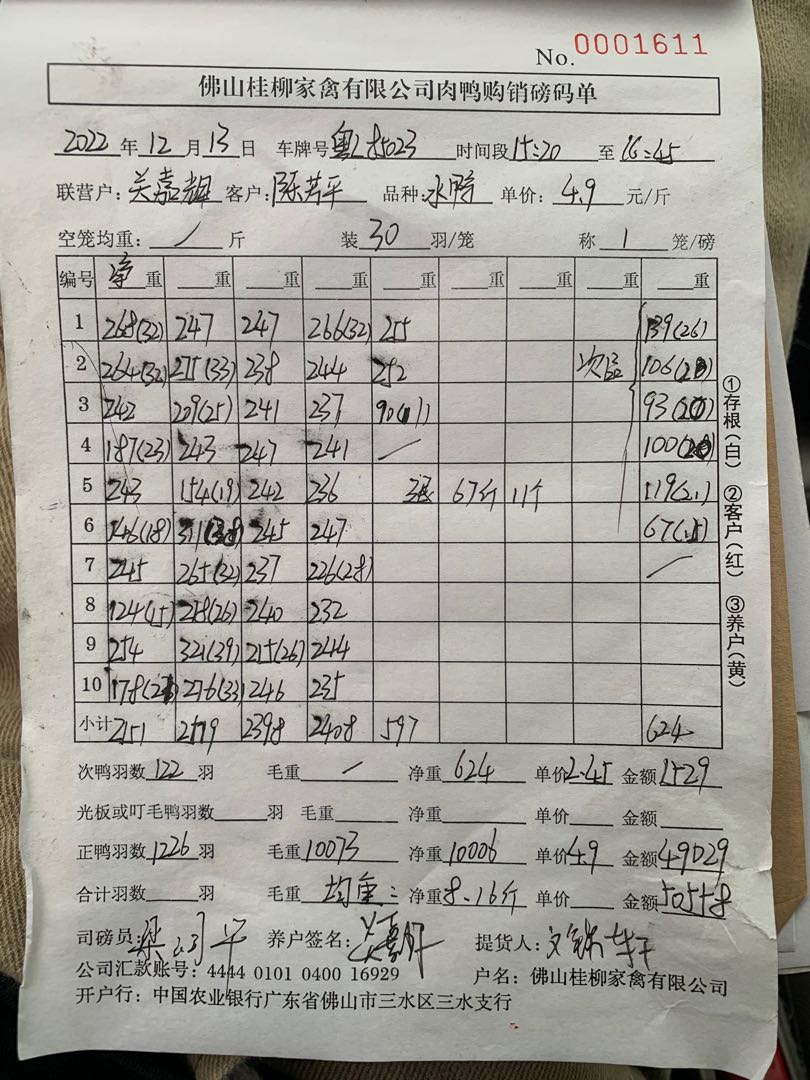 No. 0001611
佛山桂柳家禽有限公司肉鸭购销磅码单
2022 年 12 月 13 日 车牌号 粤L85023 时间段 15:20 至 16:45
联营户: 关嘉辉 客户: 陈若平 品种: 水鸭 单价: 4.9 元/斤
空笼均重: / 斤 装 30 羽/笼 称 1 笼/磅
编号 净重 重 重 重 重 重 重 重 重
1 268(32) 247 247 266(32) 255 139(26)
2 264(32) 275(33) 238 244 252 次品 106(21)
3 242 209(25) 241 237 90(11) 93(20)
4 187(23) 243 247 241 / 100(20)
5 243 154(19) 242 236 67斤 11个 119(21)
6 146(18) 311(38) 245 247 67(15)
7 245 265(32) 237 226(28) /
8 124(15) 218(26) 240 232
9 254 321(39) 215(26) 244
10 178(22) 276(33) 246 235
小计 2151 2519 2398 2408 597 624
次鸭羽数 122 羽 毛重 / 净重 624 单价 2.45 金额 1529
光板或叮毛鸭羽数 羽 毛重 净重 单价 金额
正鸭羽数 1226 羽 毛重 10073 净重 10006 单价 4.9 金额 49029
合计羽数 羽 毛重 均重: 净重 8.16斤 单价 金额 50558
司磅员: 养户签名: 提货人:
公司汇款账号: 4444 0101 0400 16929 户名: 佛山桂柳家禽有限公司
开户行: 中国农业银行广东省佛山市三水区三水支行
①存根(白) ②客户(红) ③养户(黄)